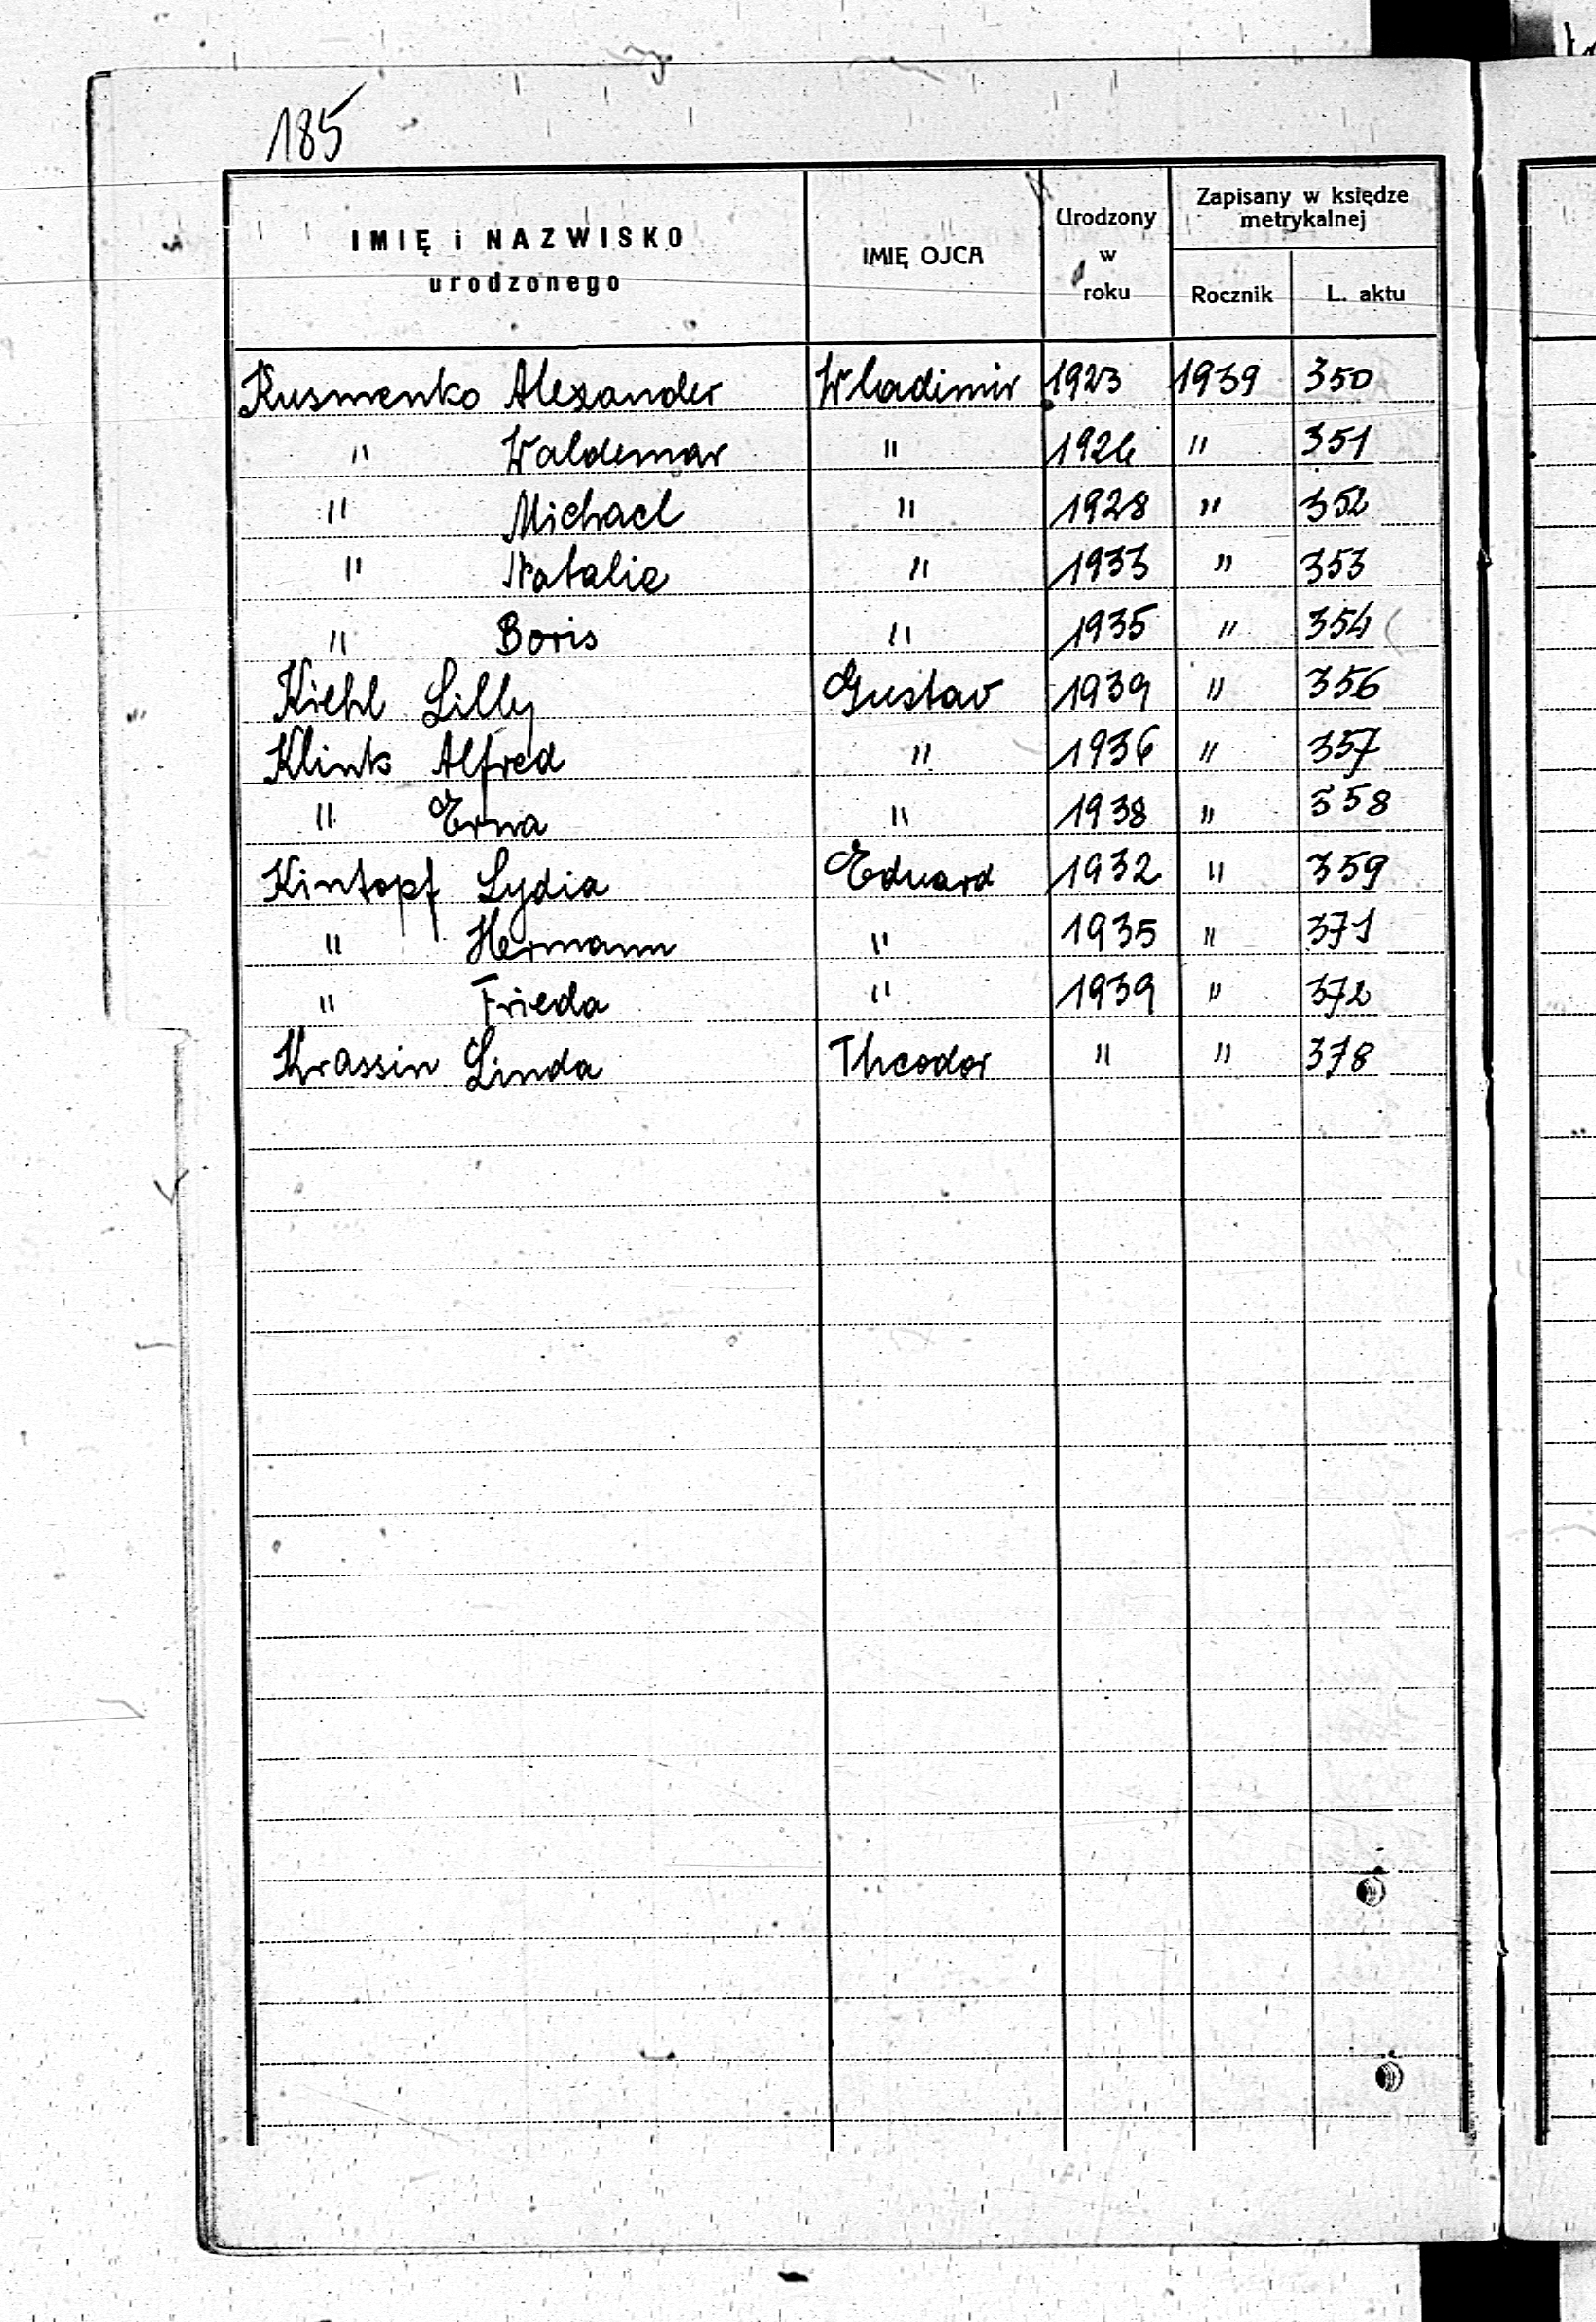 185
IMIĘ i NAZWISKO urodzonego | IMIĘ OJCA | Urodzony w roku | Zapisany w księdze metrykalnej
Rocznik | L. aktu
Kusmenko Alexander | Wladimir | 1923 | 1939 | 350
" Waldemar | " | 1926 | " | 351
" Michael | " | 1928 | " | 352
" Natalie | " | 1933 | " | 353
" Boris | " | 1935 | " | 354
Kiehl Lilly | Gustav | 1939 | " | 356
Klink Alfred | " | 1936 | " | 357
" Erna | " | 1938 | " | 358
Kintopf Lydia | Eduard | 1932 | " | 359
" Hermann | " | 1935 | " | 371
" Frieda | " | 1939 | " | 372
Krassin Linda | Theodor | " | " | 378